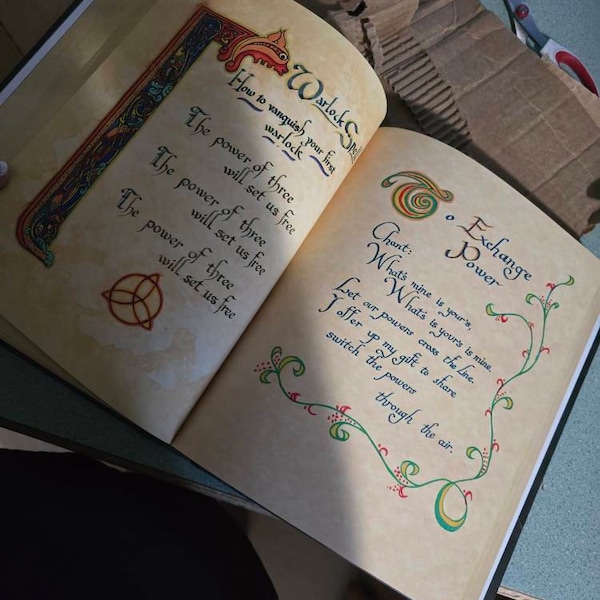 Warlock Spell
How to vanquish your first
warlock
The power of three
will set us free
The power of three
will set us free
The power of three
will set us free
To Exchange
Power
Chant:
What's mine is your's,
What's is your's is mine.
Let our powers cross the line.
I offer up my gift to share
switch the powers
through the air.